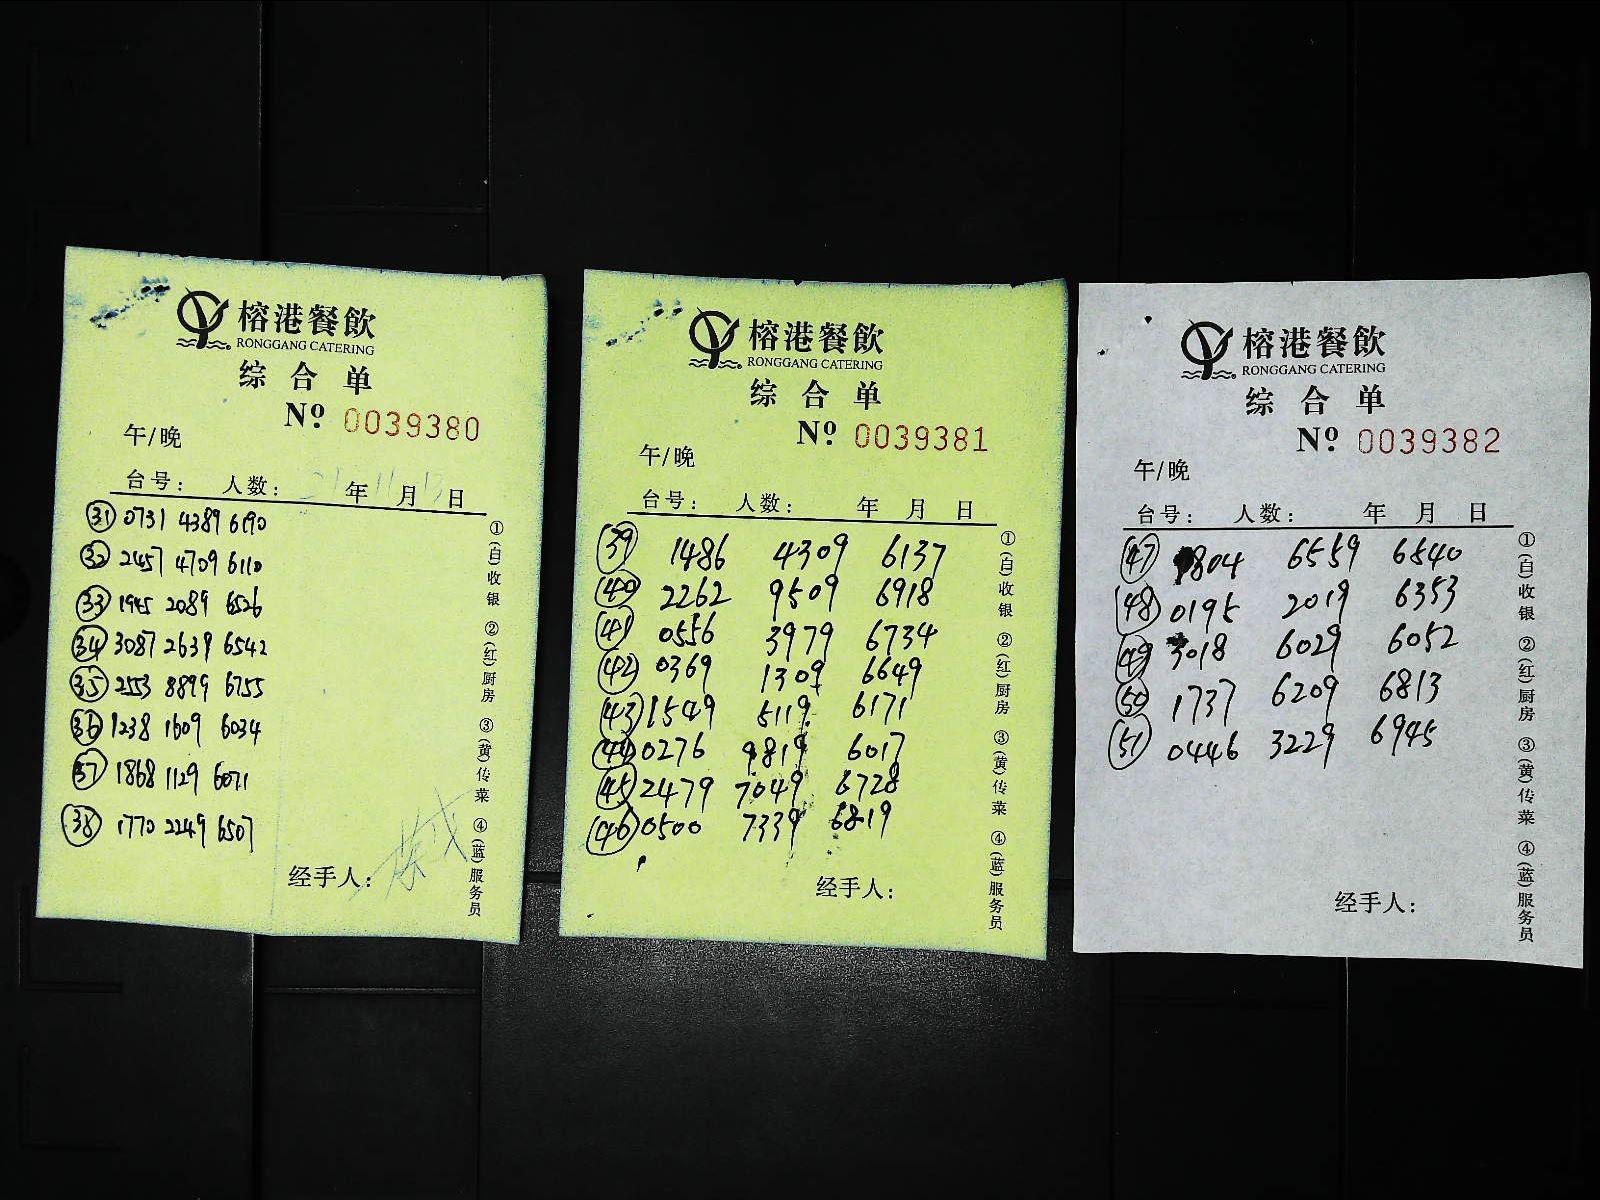 榕港餐飲
RONGGANG CATERING
综合单
Nº 0039380
午/晚
台号: 人数: 21年11月13日
㉛ 0731 4389 6190
㉜ 2457 4709 6110
㉝ 1945 2089 6526
㉞ 3087 2639 6542
㉟ 2553 8899 6755
㊱ 1238 1609 6034
㊲ 1868 1129 6071
㊳ 1770 2249 6507
经手人:
①(白)收银 ②(红)厨房 ③(黄)传菜 ④(蓝)服务员
榕港餐飲
RONGGANG CATERING
综合单
Nº 0039381
午/晚
台号: 人数: 年 月 日
㊴ 1486 4309 6137
㊵ 2262 9509 6918
㊶ 0556 3979 6734
㊷ 0369 1309 6649
㊸ 1549 5119 6171
㊹ 0276 9819 6017
㊺ 2479 7049 6728
㊻ 0500 7339 6819
经手人:
①(白)收银 ②(红)厨房 ③(黄)传菜 ④(蓝)服务员
榕港餐飲
RONGGANG CATERING
综合单
Nº 0039382
午/晚
台号: 人数: 年 月 日
㊼ 6559 6540
㊽ 0195 2019 6353
㊾ 3018 6029 6052
㊿ 1737 6209 6813
(51) 0446 3229 6945
经手人:
①(白)收银 ②(红)厨房 ③(黄)传菜 ④(蓝)服务员